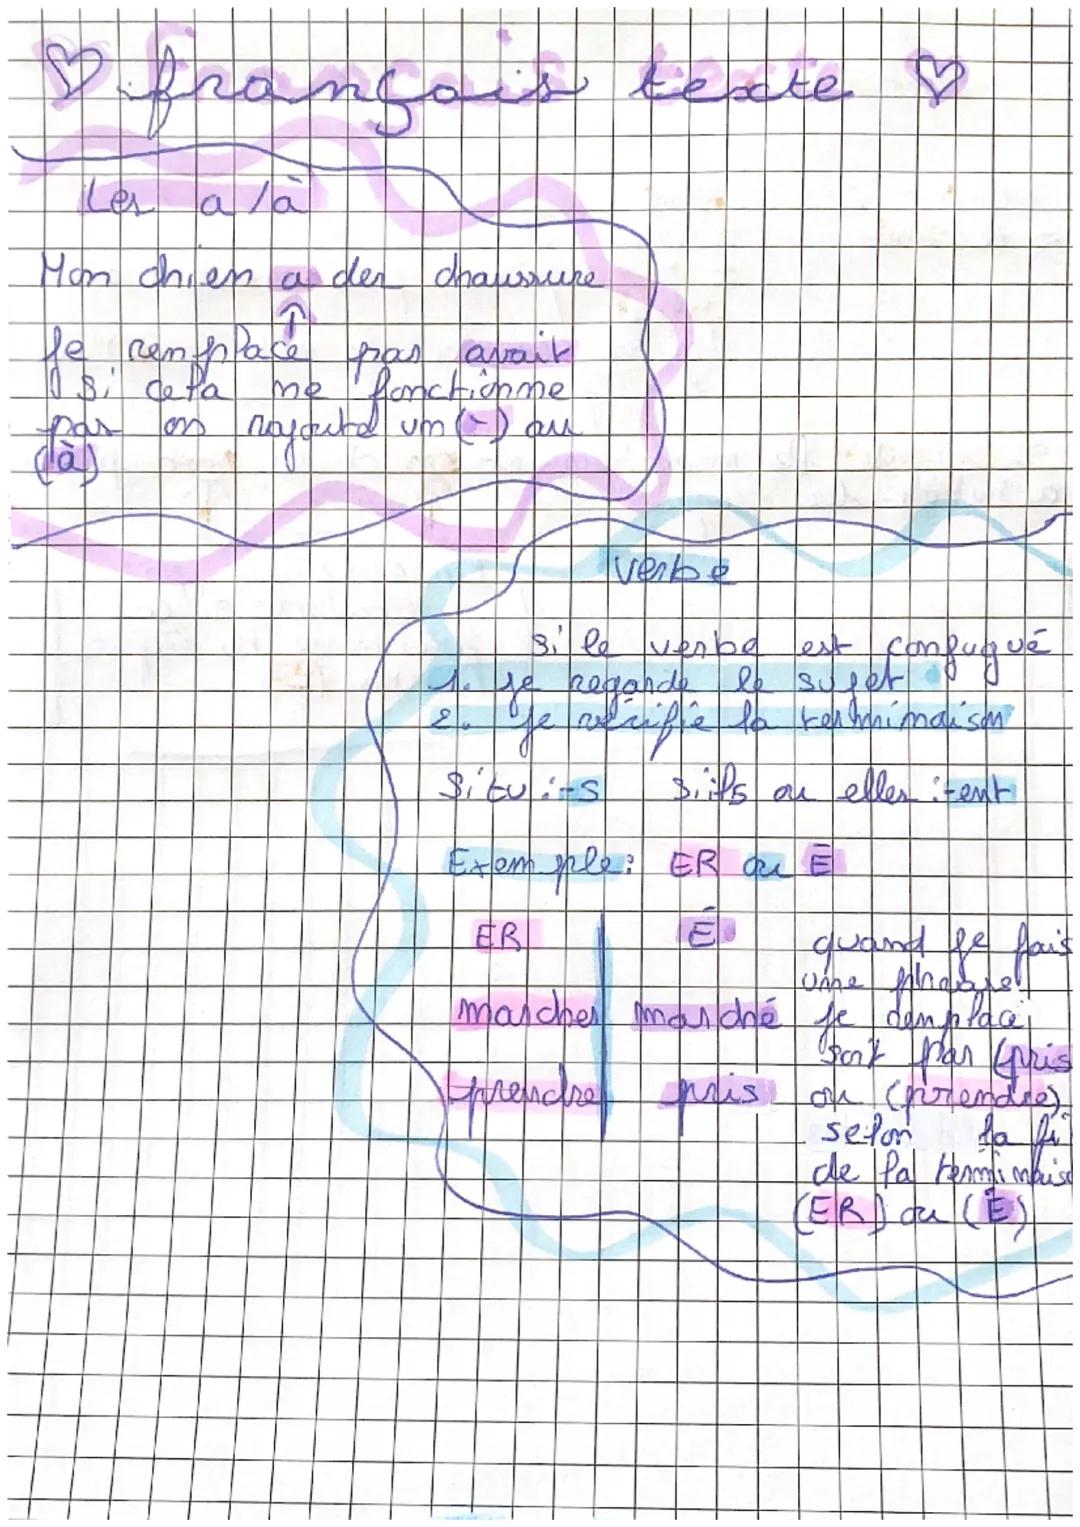 ♡ français texte ♡
Les a / à
Mon chien a des chaussure
Je remplace par avait
si cela ne fonctionne
pas on rajoute un (-) au
(à)
verbe
si le verbe est conjugué
1. je regarde le sujet
2. je vérifie la terminaison
Si tu : -s si ils ou elles : -ent
Exemple : ER ou É
ER É
marcher marché
prendre pris
quand je fais
une phrase
je remplace
soit par (pris
ou (prendre)
selon la fi
de la terminais
(ER) ou (É)